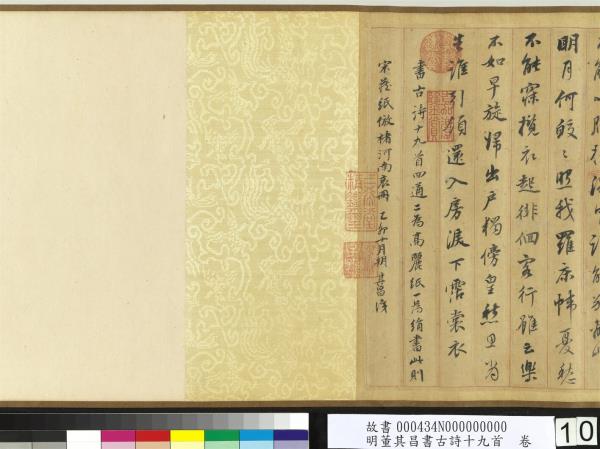 明月何皎皎照我羅床帷憂愁
不能寐攬衣起徘徊客行雖云樂
不如早旋歸出戶獨傍皇愁思當
告誰引領還入房淚下霑裳衣
書古詩十九首四通二為高麗紙一為綃書此則
宋藏紙倣褚河南哀冊 乙卯十月朔 其昌識
故書 000434N000000000
明董其昌書古詩十九首 卷
10